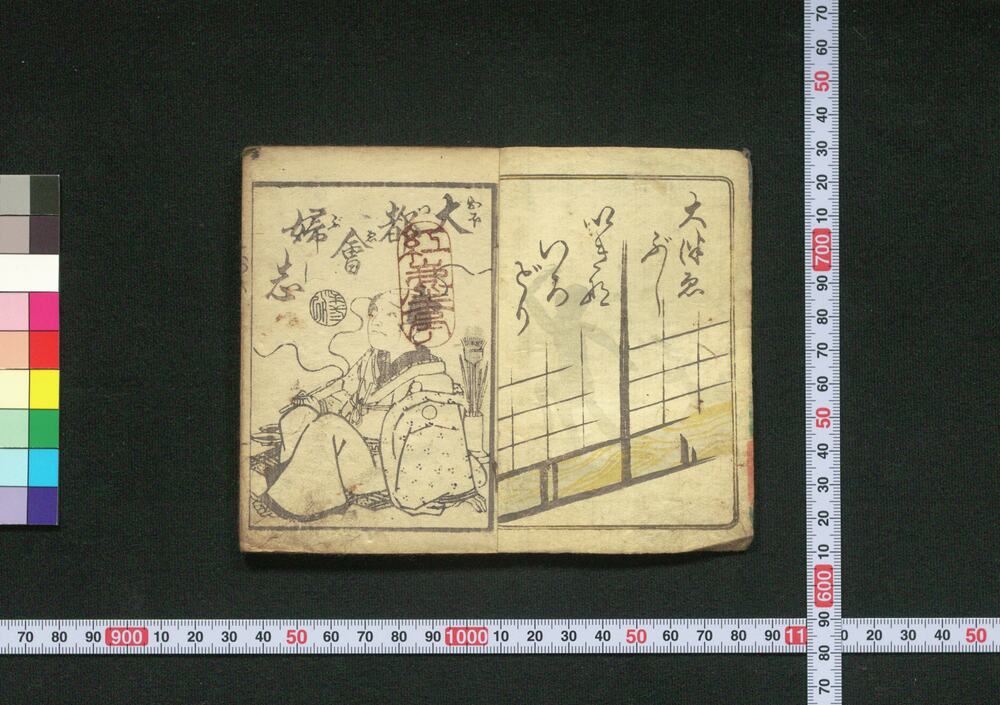 大津ゑ
ぶし
いきな
いろ
どり
大都會婦志
70 60 50 40 30 20 10 700 90 80 70 60 50 40 30 20 10 600 90 80 70
70 80 90 900 10 20 30 40 50 60 70 80 90 1000 10 20 30 40 50 60 70 80 90 11 0 20 30 40 50